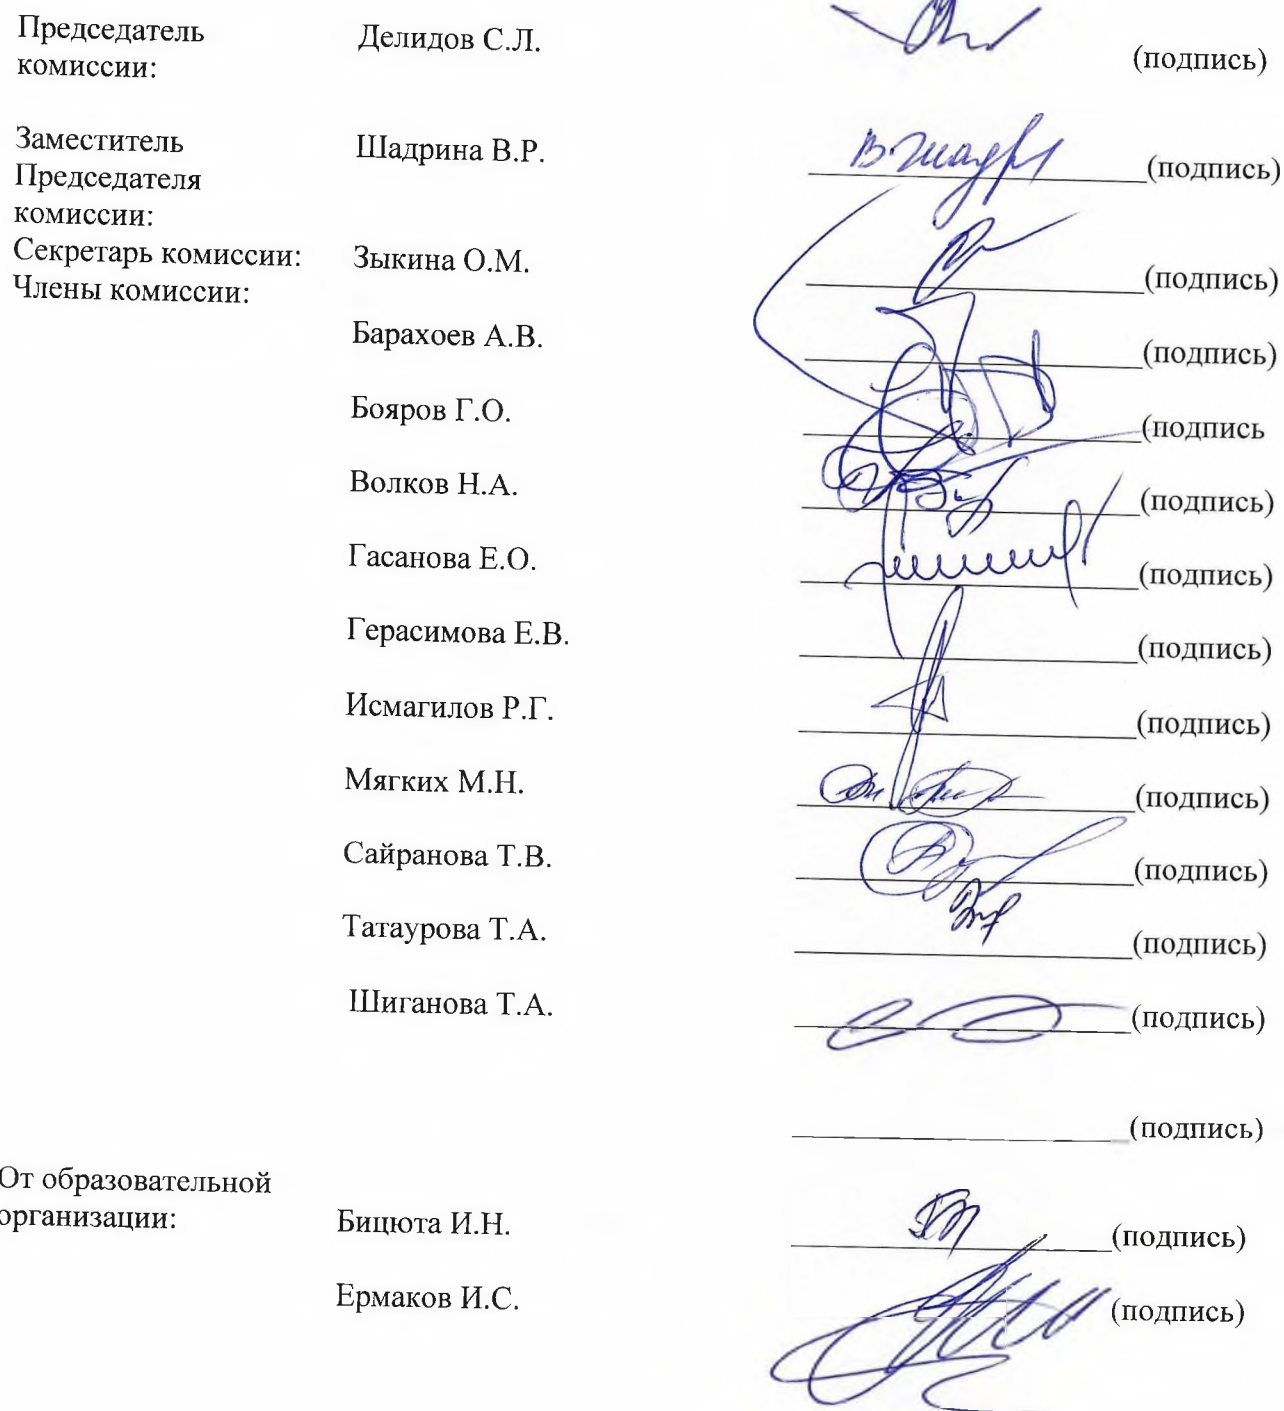 Председатель Делидов С.Л.
комиссии: (подпись)
Заместитель Шадрина В.Р.
Председателя (подпись)
комиссии:
Секретарь комиссии: Зыкина О.М. (подпись)
Члены комиссии:
Барахоев А.В. (подпись)
Бояров Г.О. (подпись
Волков Н.А. (подпись)
Гасанова Е.О. (подпись)
Герасимова Е.В. (подпись)
Исмагилов Р.Г. (подпись)
Мягких М.Н. (подпись)
Сайранова Т.В. (подпись)
Татаурова Т.А. (подпись)
Шиганова Т.А. (подпись)
(подпись)
От образовательной
организации: Бицюта И.Н. (подпись)
Ермаков И.С. (подпись)